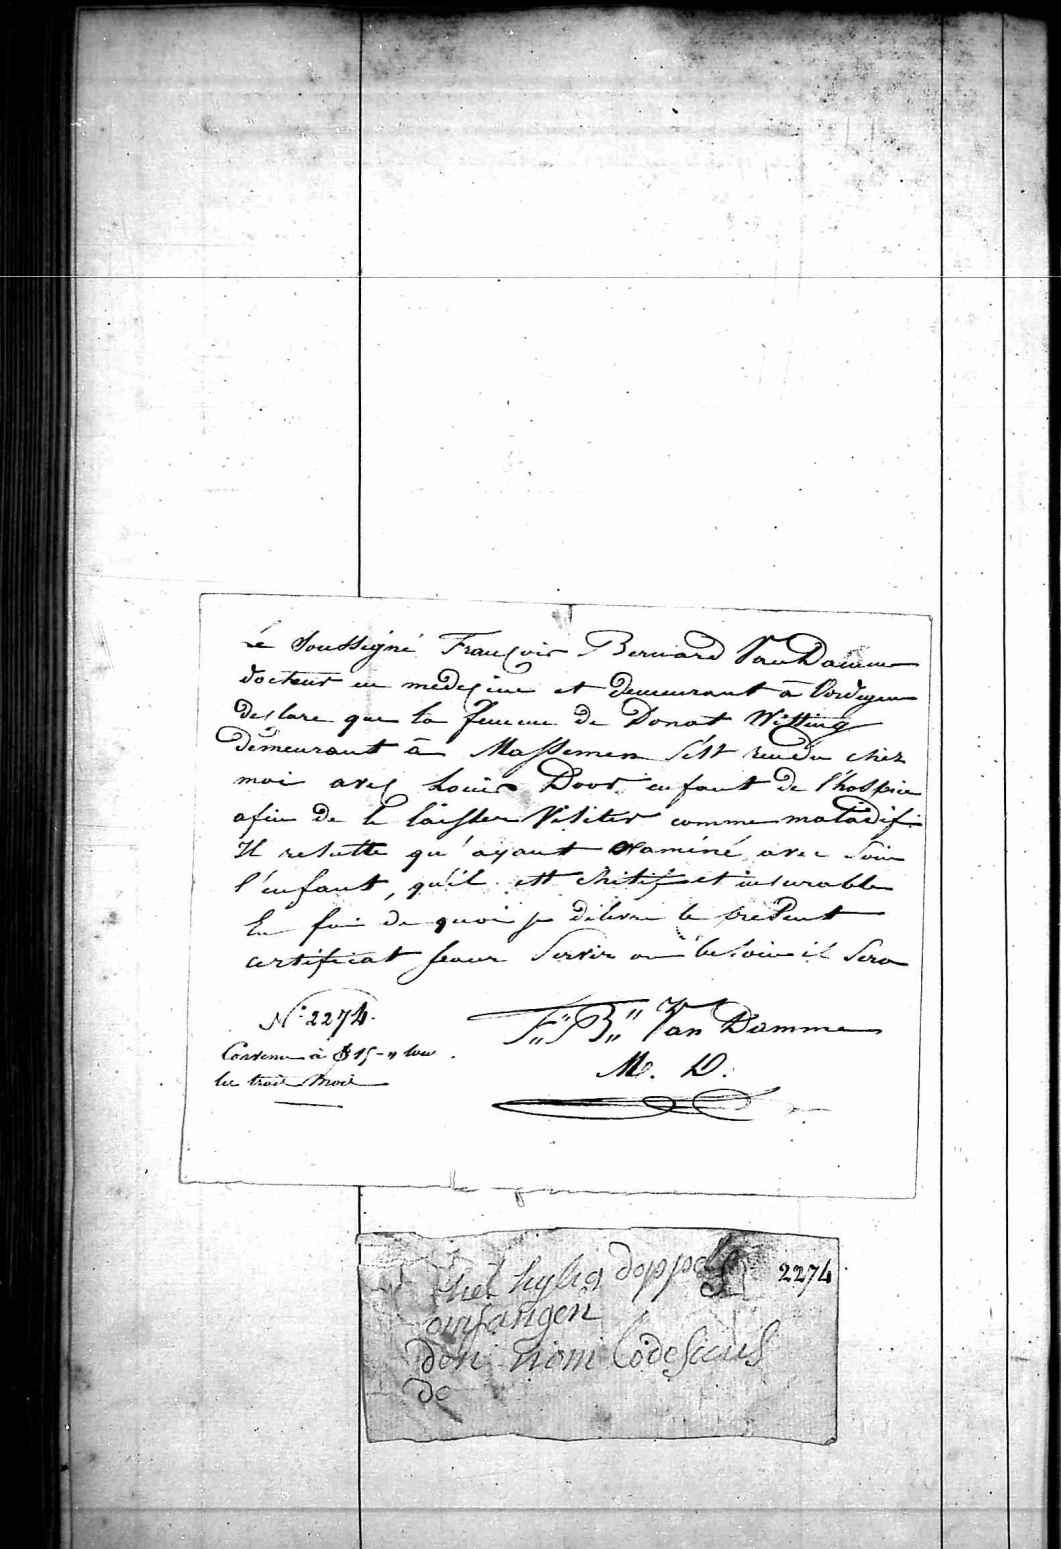 Le Soussigné François Bernard Van Damme
docteur en medeçine et demeurant à Ordegem
declare que la femme de Donat Witting
demeurant à Massemen s'est rendu chez
moi avec Louis Door enfant de l'hospice
afin de le laisser visiter comme maladif
Il resulte qu'ayant examiné avec soin
l'enfant, qu'il est chétif et incurable
En foi de quoi je délivre le present
certificat pour servir où besoin il sera
N.º 2274.
Convenu à 15-"
les trois mois
F:" B:" Van Damme
M. D.
2274
het doppel
onfangen
den nom
de